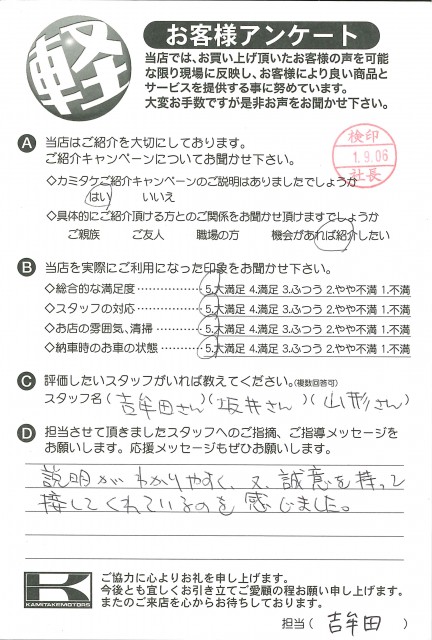 軽
お客様アンケート
当店では、お買い上げ頂いたお客様の声を可能
な限り現場に反映し、お客様により良い商品と
サービスを提供する事に努めています。
大変お手数ですが是非お声をお聞かせ下さい。
検印
1.9.06
社長
A 当店はご紹介を大切にしております。
ご紹介キャンペーンについてお聞かせ下さい。
◇カミタケご紹介キャンペーンのご説明はありましたでしょうか
はい いいえ
◇具体的にご紹介頂ける方とのご関係をお聞かせ頂けますでしょうか
ご親族 ご友人 職場の方 機会があれば紹介したい
B 当店を実際にご利用になった印象をお聞かせ下さい。
◇総合的な満足度 ……………… 5.大満足 4.満足 3.ふつう 2.やや不満 1.不満
◇スタッフの対応 ……………… 5.大満足 4.満足 3.ふつう 2.やや不満 1.不満
◇お店の雰囲気、清掃 ………… 5.大満足 4.満足 3.ふつう 2.やや不満 1.不満
◇納車時のお車の状態 ………… 5.大満足 4.満足 3.ふつう 2.やや不満 1.不満
C 評価したいスタッフがいれば教えてください。(複数回答可)
スタッフ名(吉牟田さん)(坂井さん)(山形さん)
D 担当させて頂きましたスタッフへのご指摘、ご指導メッセージを
お願いします。応援メッセージもぜひお願いします。
説明がわかりやすく、又、誠意を持って
接してくれているのを感じました。
K
KAMITAKEMOTORS
ご協力に心よりお礼を申し上げます。
今後とも宜しくお引き立てご愛顧の程お願い申し上げます。
またのご来店を心からお待ちしております。
担当(吉牟田)